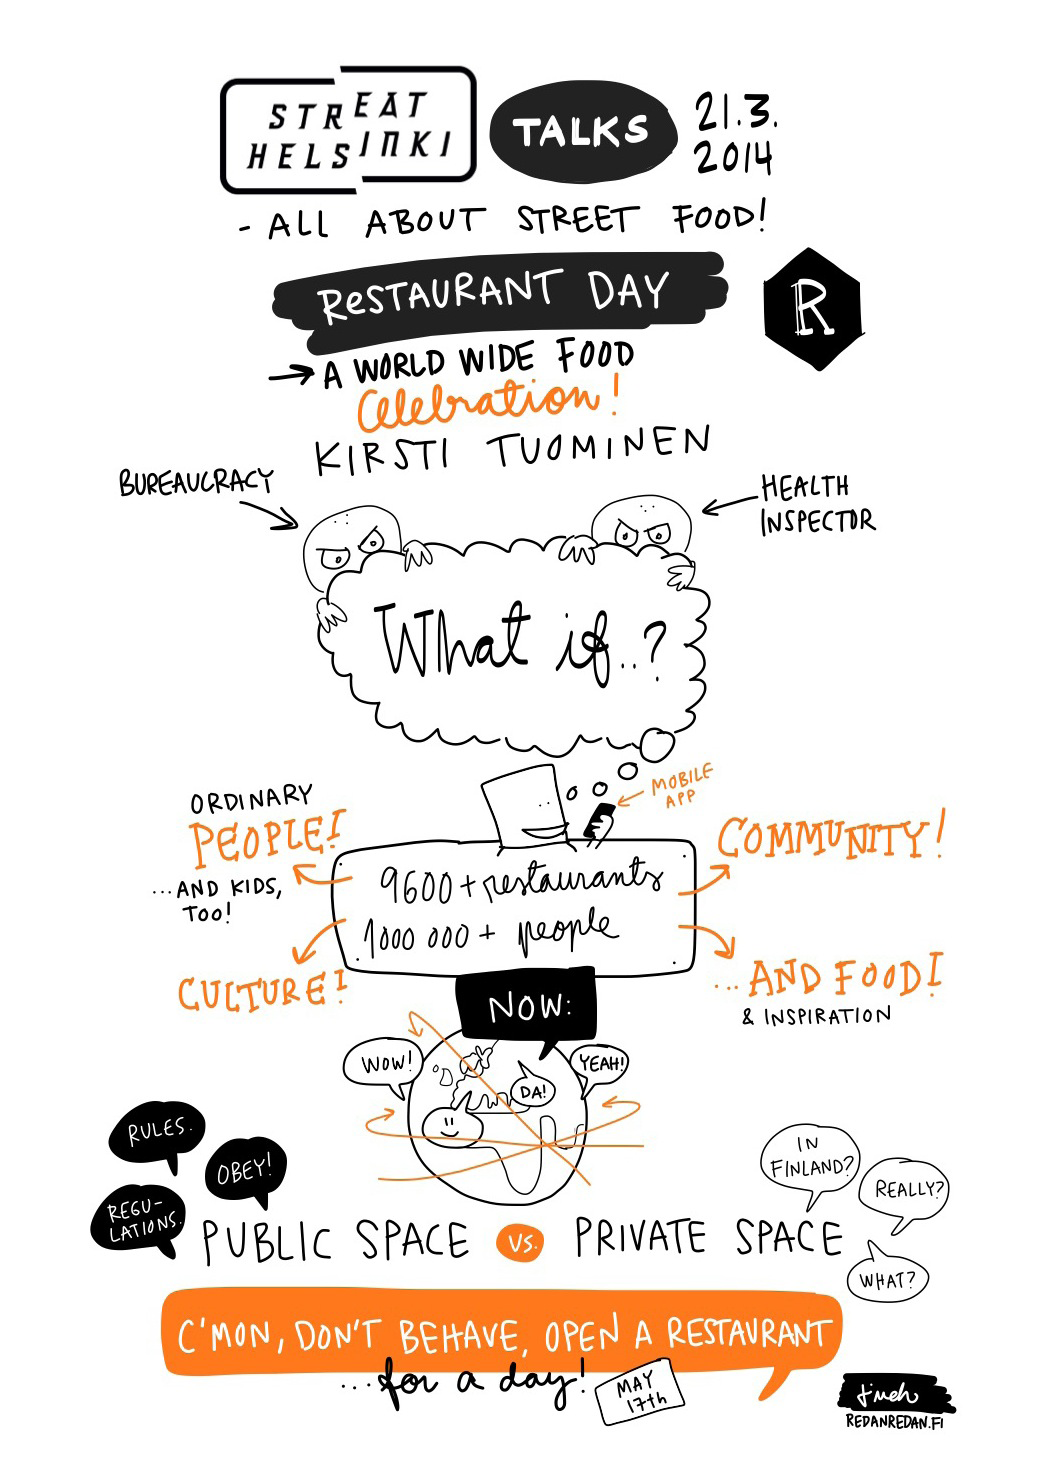 STREAT
HELSINKI
TALKS
21.3.
2014
- ALL ABOUT STREET FOOD!
ReSTAURANT DAY
R
A WORLD WIDE FOOD
Celebration!
KIRSTI TUOMINEN
BUREAUCRACY
HEALTH
INSPECTOR
What if..?
MOBILE
APP
ORDINARY
PEOPLE!
...AND KIDS,
TOO!
COMMUNITY!
9600+ restaurants
1000 000+ people
CULTURE!
...AND FOOD!
& INSPIRATION
NOW:
WOW!
YEAH!
DA!
RULES.
OBEY!
REGU-
LATIONS.
IN
FINLAND?
REALLY?
WHAT?
PUBLIC SPACE VS. PRIVATE SPACE
C'MON, DON'T BEHAVE, OPEN A RESTAURANT
...for a day!
MAY
17th
REDANREDAN.FI